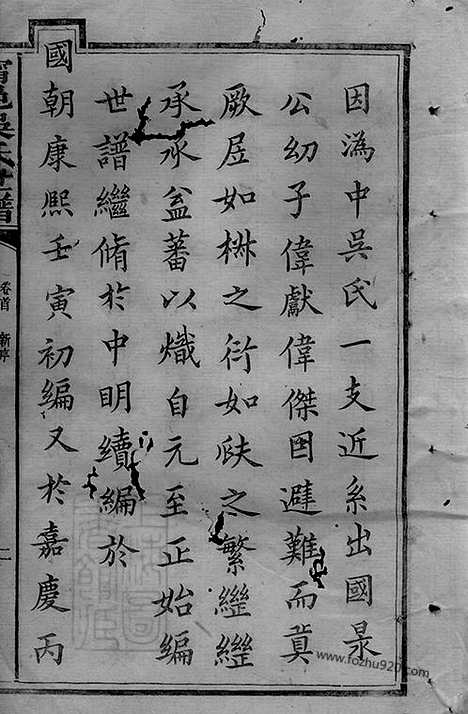 因溈中吳氏一支近系出國杲
公幼子偉獻偉傑因避難而奠
厥居如椒之衍如瓞之繁繩繩
承承益蕃以熾自元至正始編
世譜繼脩於中明續編於
國朝康熙壬寅初編又於嘉慶丙
甯邑吳氏世譜
卷首 新序
一
www.fozhu920.com